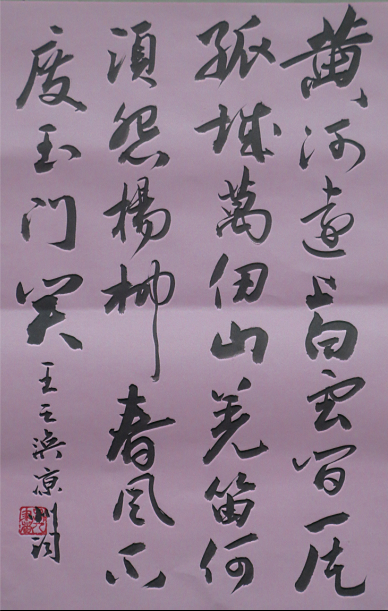 黄河远上白云间一片
孤城萬仞山羌笛何
须怨楊柳春风不
度玉门关
王之涣凉州词